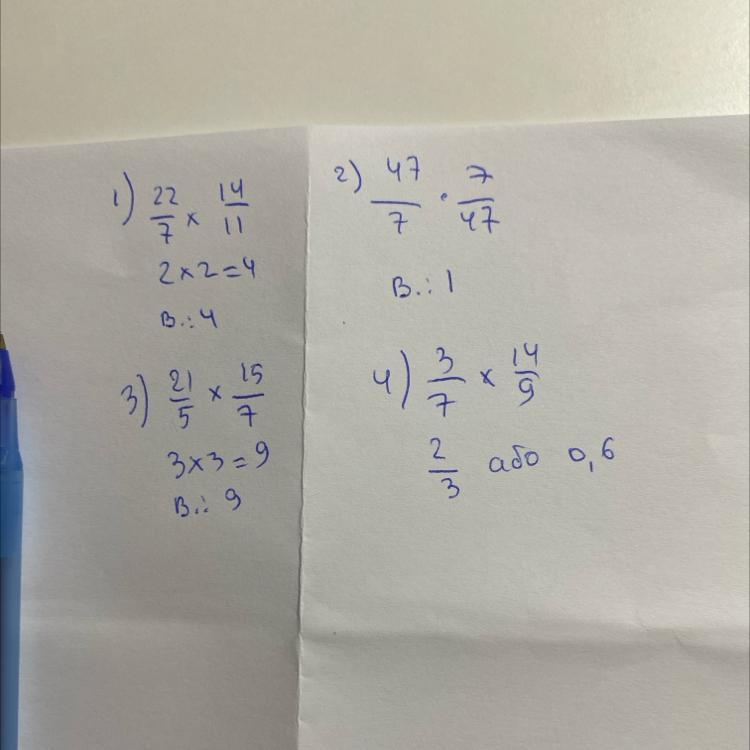 1) 22/7 x 14/11
2x2=4
В.: 4
2) 47/7 · 7/47
В.: 1
3) 21/5 x 15/7
3x3=9
В.: 9
4) 3/7 x 14/9
2/3 або 0,6